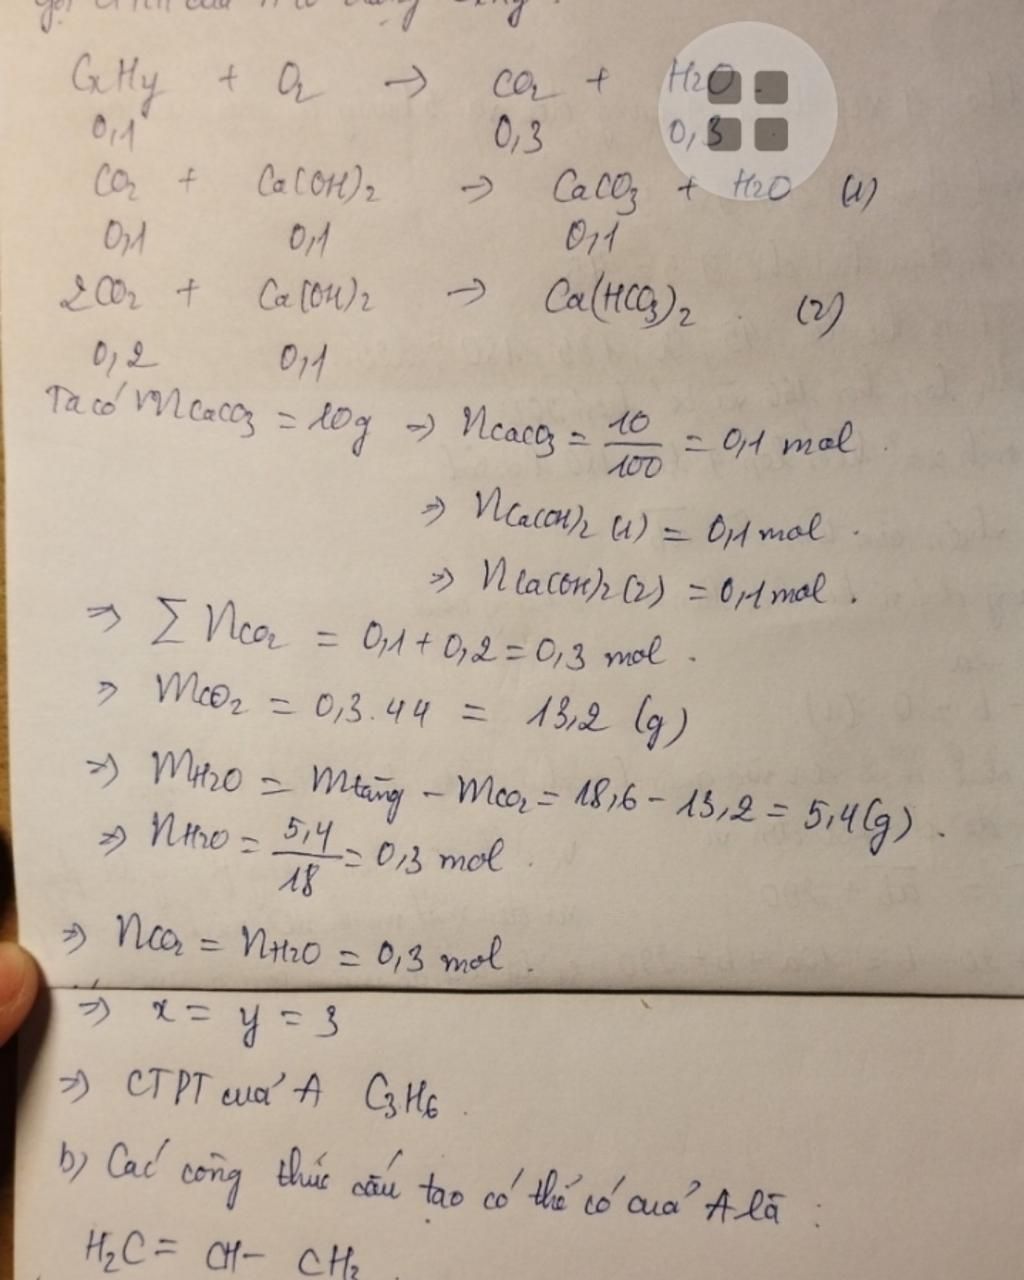 gọi CTPT của A là dạng CxHy.
CxHy + O2 → CO2 + H2O.
0,1 0,3 0,3
CO2 + Ca(OH)2 → CaCO3 + H2O (1)
0,1 0,1 0,1
2CO2 + Ca(OH)2 → Ca(HCO3)2. (2)
0,2 0,1
Ta có mCaCO3 = 10g => nCaCO3 = 10/100 = 0,1 mol.
=> nCa(OH)2 (1) = 0,1 mol.
=> nCa(OH)2 (2) = 0,1 mol.
=> ∑ nCO2 = 0,1 + 0,2 = 0,3 mol.
=> mCO2 = 0,3.44 = 13,2 (g)
=> mH2O = mtăng - mCO2 = 18,6 - 13,2 = 5,4 (g).
=> nH2O = 5,4/18 = 0,3 mol.
=> nCO2 = nH2O = 0,3 mol.
=> x = y = 3
=> CTPT của A C3H6.
b) Các công thức cấu tạo có thể có của A là:
H2C = CH - CH2